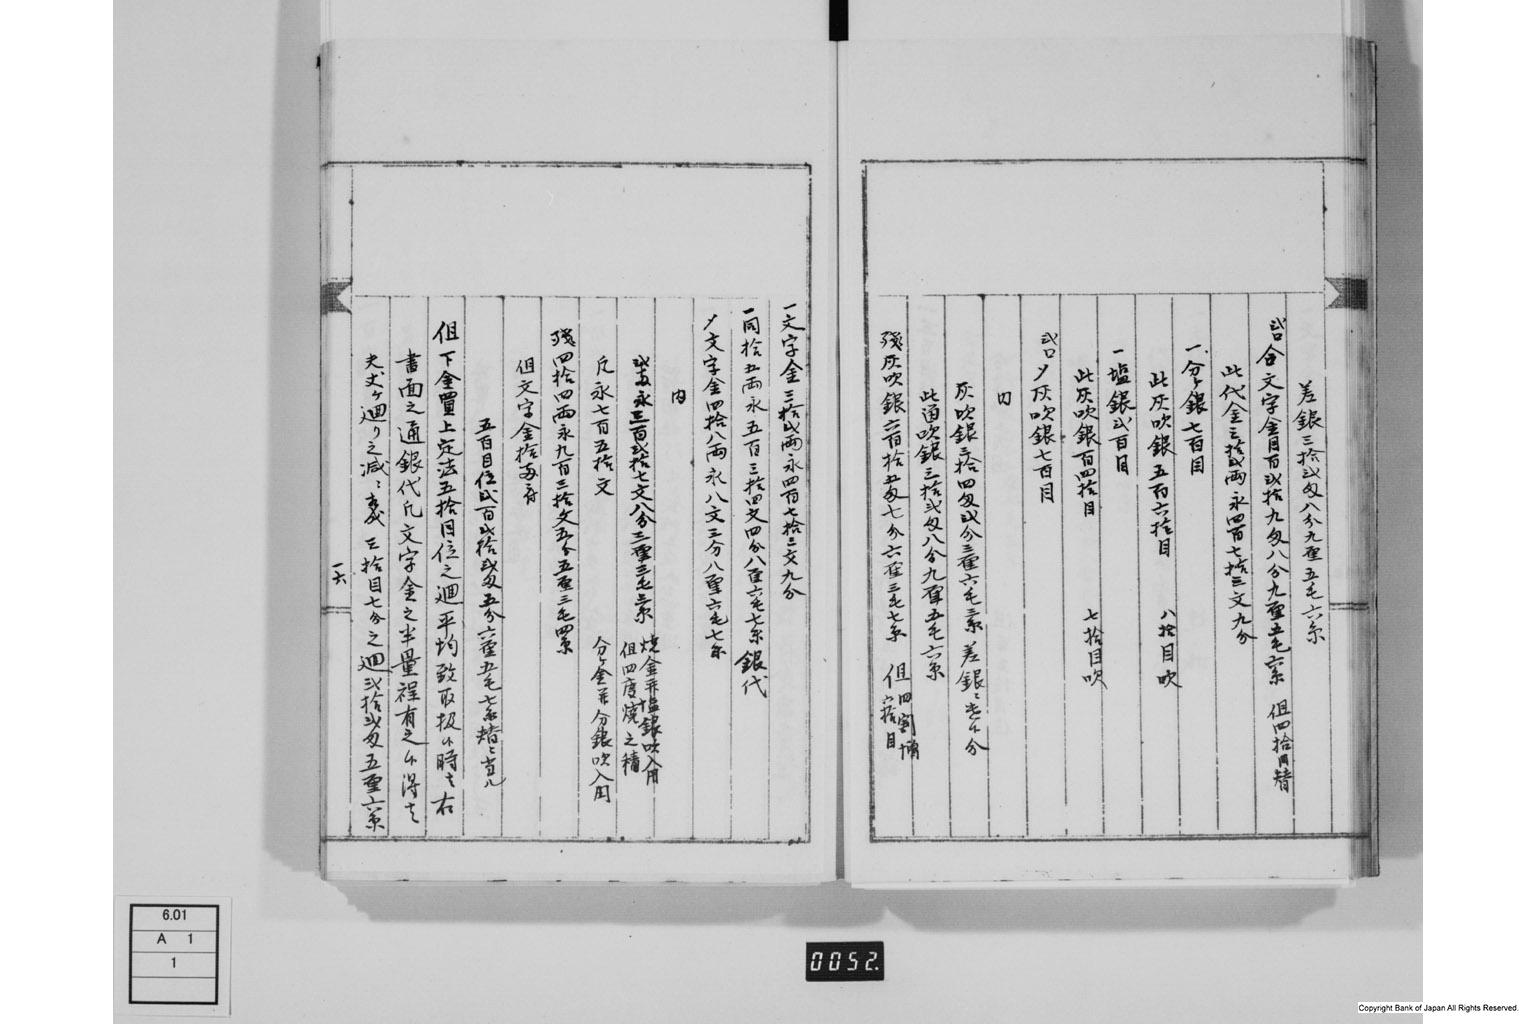 差銀三拾弐匁八分九厘五毛六糸
〆合文字金目百弐拾九匁八分九厘五毛六糸 但四拾目替
此代金三拾弐両永四百七拾三文九分
一分ヶ銀七百目
此灰吹銀五百六拾目 八拾目吹
一塩銀弐百目
此灰吹銀百四拾目 七拾目吹
〆灰吹銀七百目
内
灰吹銀三拾四匁弐分三厘六毛三糸 差銀
此通吹銀三拾弐匁八分九厘五毛六糸
残灰吹銀六百拾五匁七分六厘三毛七糸 但四割増
六拾目
一文字金三拾弐両永四百七拾三文九分
一同拾五両永五百三拾四文四分八厘六毛七糸銀代
〆文字金四拾八両永八文三分八厘六毛七糸
内
弐両永三百弐拾七文八分三厘三毛三糸 焼金并塩銀吹入用
但四度焼之積
永七百五拾文 分ヶ金并分銀吹入用
残四拾四両永九百三拾文五分五厘三毛四糸
但文字金拾両ニ付
五百目位弐百弐拾弐匁五分六厘五毛七糸替ニ当ル
但下金買上定法五拾目位之廻平均致取扱候時者右
書面之通銀代凡文字金之半量程有之候得者
丈ヶ廻り之減 三拾目七分之廻弐拾弐匁五厘六糸
一六
6.01
A 1
1
0052.
Copyright Bank of Japan All Rights Reserved.